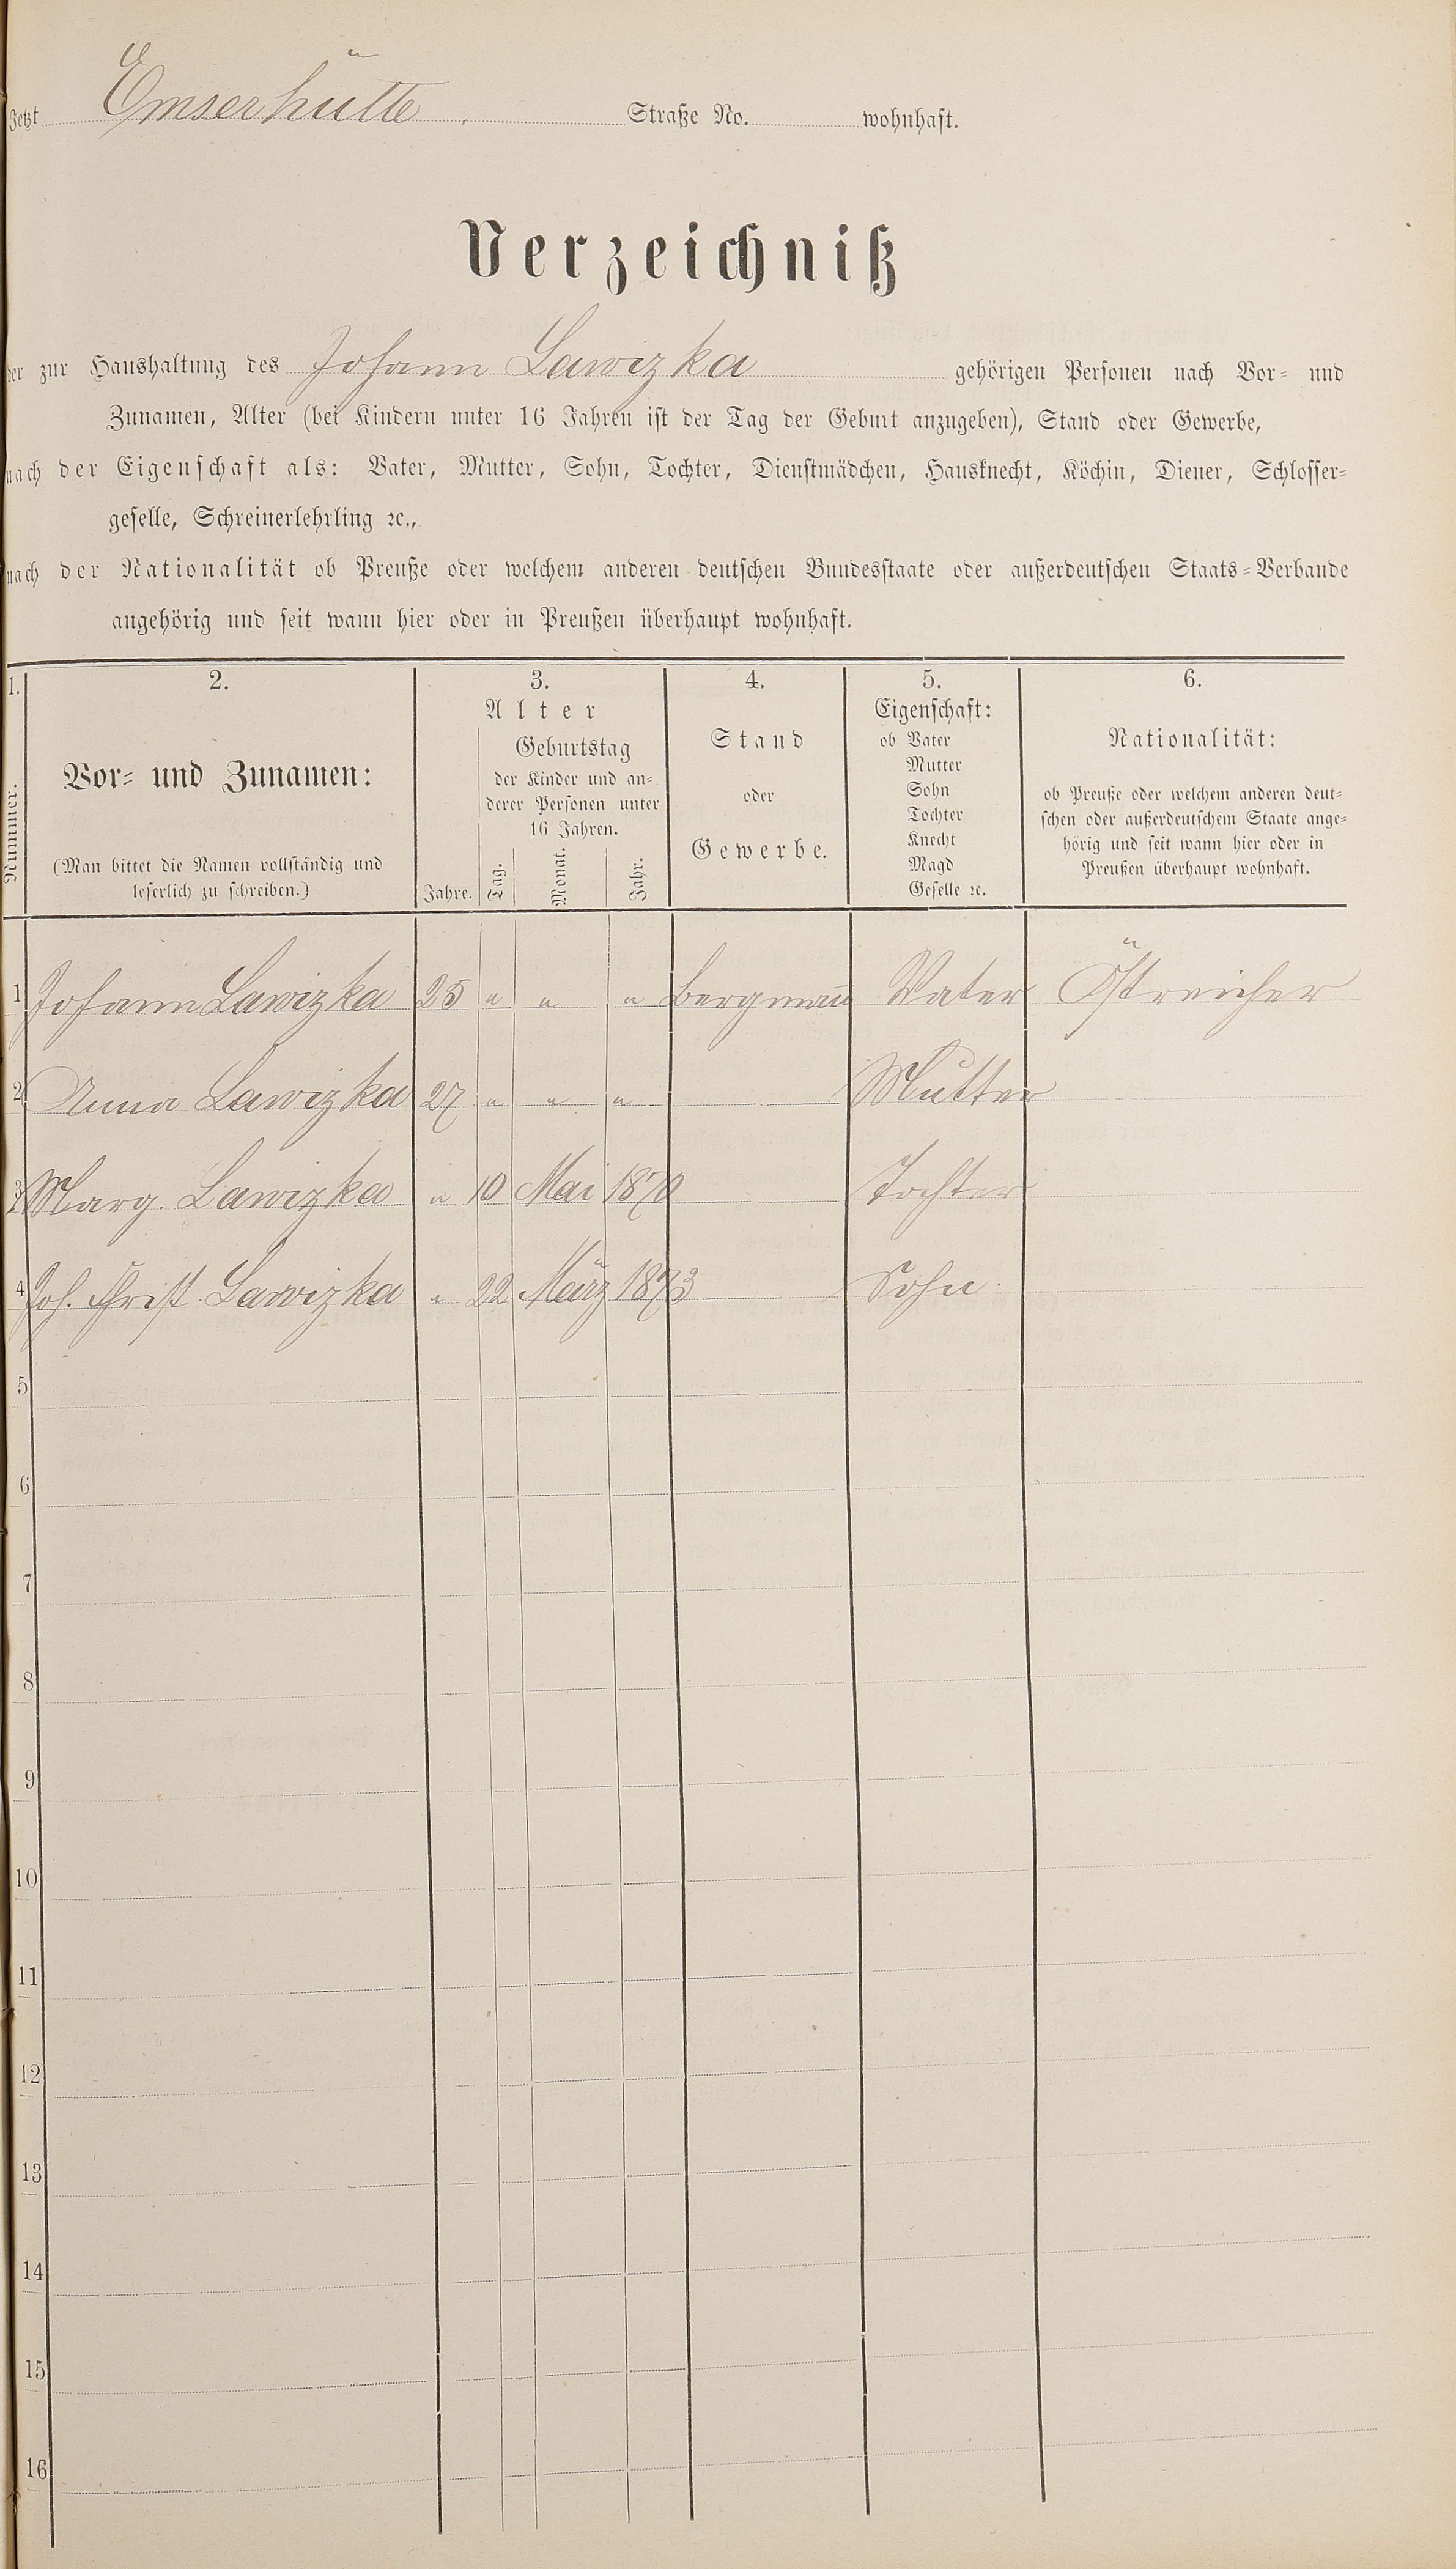 Jetzt Emserhütte Straße No. wohnhaft.
Verzeichniß
der zur Haushaltung des Johann Lawizka gehörigen Personen nach Vor- und
Zunamen, Alter (bei Kindern unter 16 Jahren ist der Tag der Geburt anzugeben), Stand oder Gewerbe,
nach der Eigenschaft als: Vater, Mutter, Sohn, Tochter, Dienstmädchen, Hausknecht, Köchin, Diener, Schlosser-
geselle, Schreinerlehrling ꝛc.,
nach der Nationalität ob Preuße oder welchem anderen deutschen Bundesstaate oder außerdeutschen Staats-Verbande
angehörig und seit wann hier oder in Preußen überhaupt wohnhaft.
1. 2. 3. 4. 5. 6.
Nummer.
Vor- und Zunamen:
(Man bittet die Namen vollständig und
leserlich zu schreiben.)
Alter
Jahre.
Geburtstag
der Kinder und an-
derer Personen unter
16 Jahren.
Tag. Monat. Jahr.
Stand
oder
Gewerbe.
Eigenschaft:
ob Vater
Mutter
Sohn
Tochter
Knecht
Magd
Geselle ꝛc.
Nationalität:
ob Preuße oder welchem anderen deut-
schen oder außerdeutschem Staate ange-
hörig und seit wann hier oder in
Preußen überhaupt wohnhaft.
1 Johann Lawizka 25 " " " Bergmann Vater Östreicher
2 Anna Lawizka 27 " " " Mutter
3 Marg. Lawizka " 10 Mai 1870 Tochter
4 Joh. Christ. Lawizka " 22 März 1873 Sohn
5
6
7
8
9
10
11
12
13
14
15
16